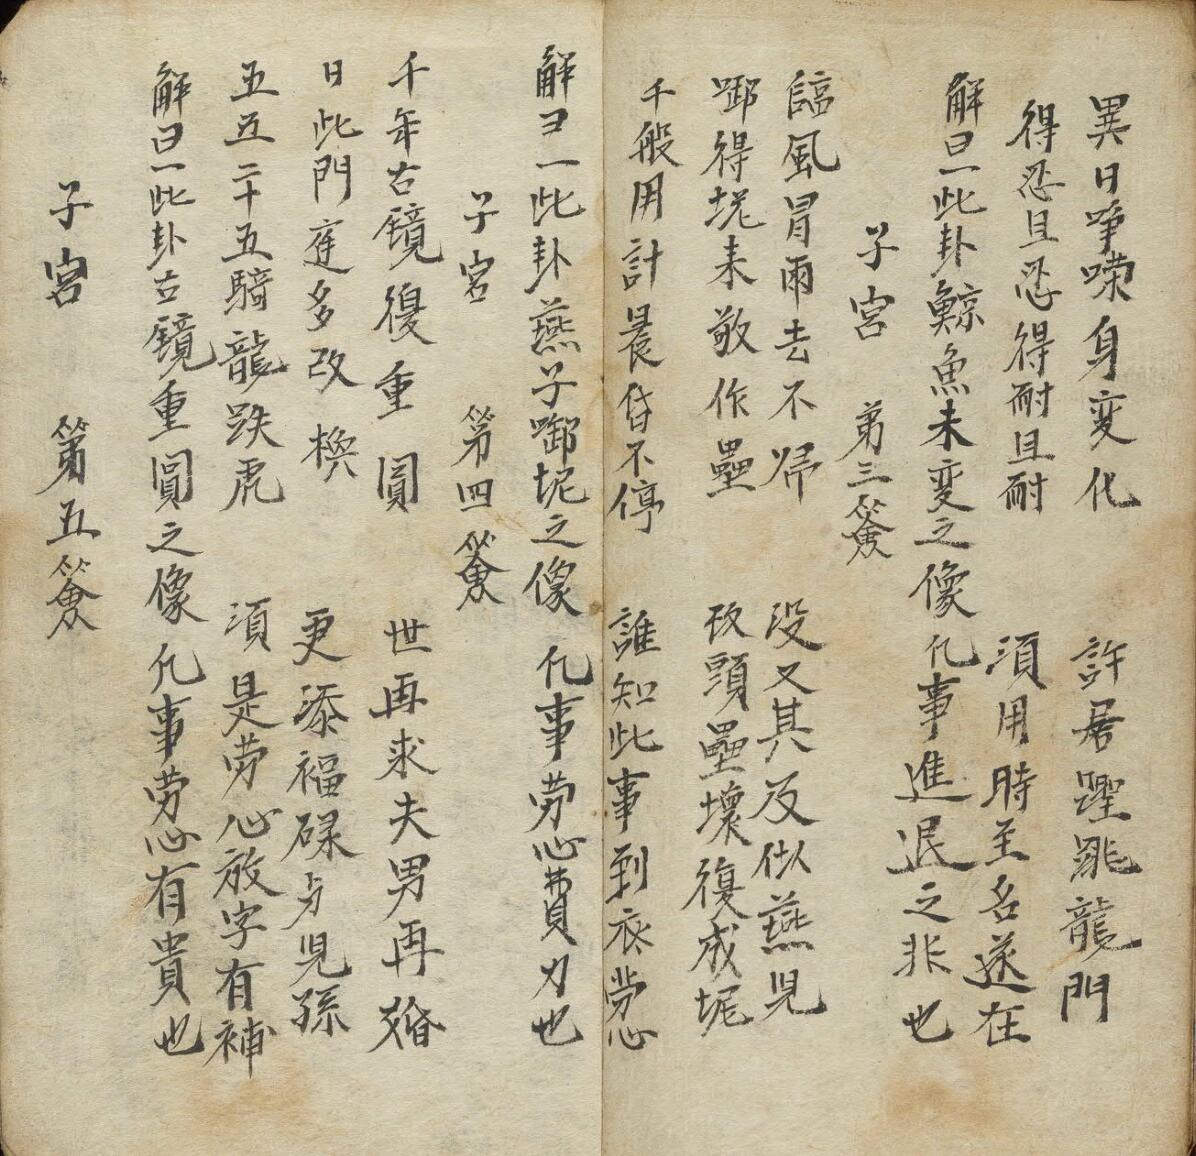 異日崢嶸身変化 許君𨁝跳龍門
得忍且忍得耐且耐 須用時至名遂在
解曰一此卦鯨魚未変之像 凢事進退之非也
子宮 苐三簽
臨風冒雨去不歸 役又其及似燕児
啣得坭未敬作壘 致頭壘壞復成坭
千般用計晨昏不停 誰知此事到底劳心
解曰一此卦燕子啣坭之像 凢事劳心費力也
子宮 第四簽
千年古镜復重圓 世再求夫男再婚
日此門庭多改換 更添福禄与児孫
五五二十五騎龍跌虎 須是劳心放字有補
解曰一此卦古镜重圓之像 凢事劳心有貴也
子宮 第五簽